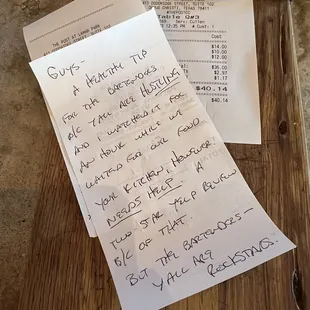 THE POST AT LAMAR PARK
Table Q#3
Cost
$14.00
$10.00
$12.00
$36.00
$2.97
$1.17
$40.14
$40.14
GUYS-
A HEALTHY TIP
FOR THE BARTENDERS
B/C Y'ALL ARE HUSTLING
AND I WATCHED IT FOR
AN HOUR WHILE WE
WAITED FOR OUR FOOD.
YOUR KITCHEN, HOWEVER,
NEEDS HELP. A
TWO STAR YELP REVIEW
B/C OF THAT.
BUT THE BARTENDERS-
Y'ALL ARE
ROCKSTARS.